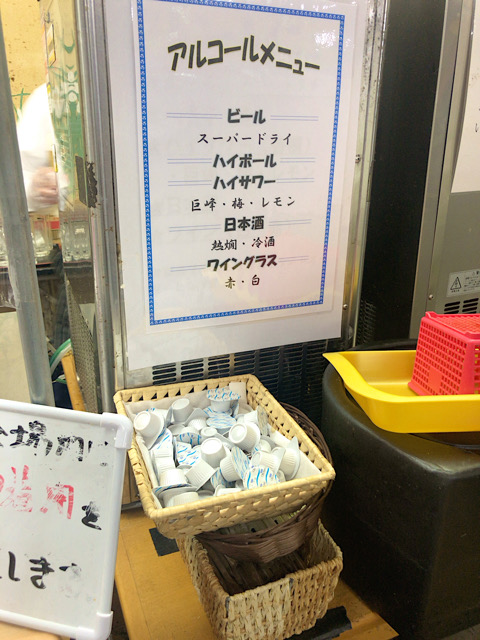 アルコールメニュー
ビール
スーパードライ
ハイボール
ハイサワー
巨峰・梅・レモン
日本酒
熱燗・冷酒
ワイングラス
赤・白
場内に
と
しま